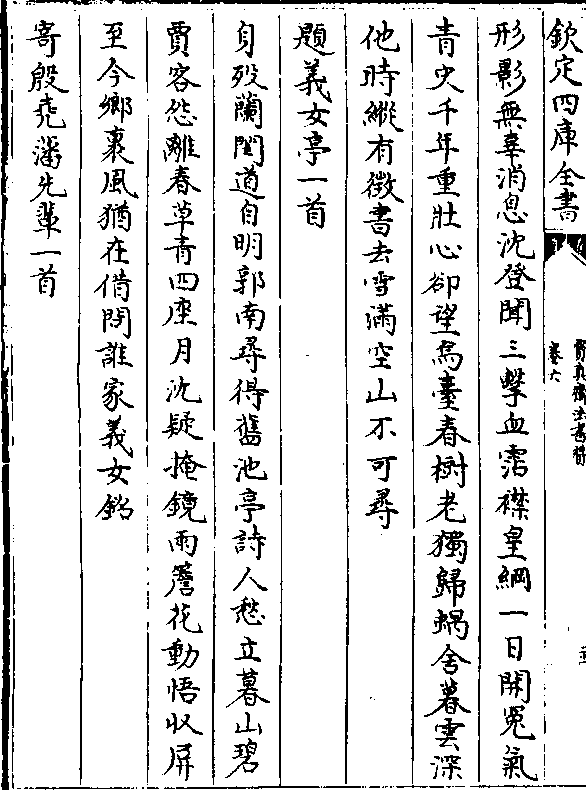 欽定四庫全書
寶真齋法書贊
卷六
形影無辜消息沈登聞三擊血霑襟皇綱一日開冤氣
青史千年重壯心卻望烏臺春樹老獨歸蝸舍暮雲深
他時縱有徵書去雪滿空山不可尋
題義女亭一首
身殁蘭閨道自明郭南尋得舊池亭詩人愁立暮山碧
賈客怨離春草青四座月沈疑掩鏡雨簷花動悟收屏
至今鄉裏風猶在借問誰家義女銘
寄殷堯藩先輩一首